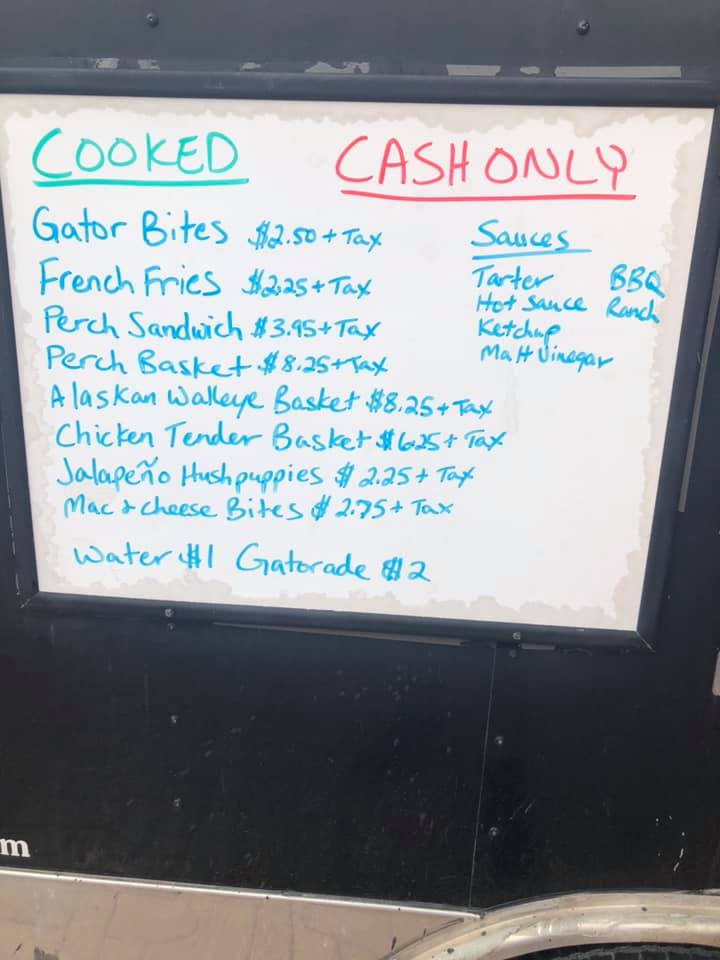 COOKED
CASH ONLY
Gator Bites $2.50 + Tax
French Fries $2.25 + Tax
Perch Sandwich $3.95 + Tax
Perch Basket $8.25 + Tax
Alaskan Walleye Basket $8.25 + Tax
Chicken Tender Basket $6.25 + Tax
Jalapeño Hushpuppies $2.25 + Tax
Mac & Cheese Bites $2.75 + Tax
Water $1 Gatorade $2
Sauces
Tarter BBQ
Hot Sauce Ranch
Ketchup
Malt Vinegar
m